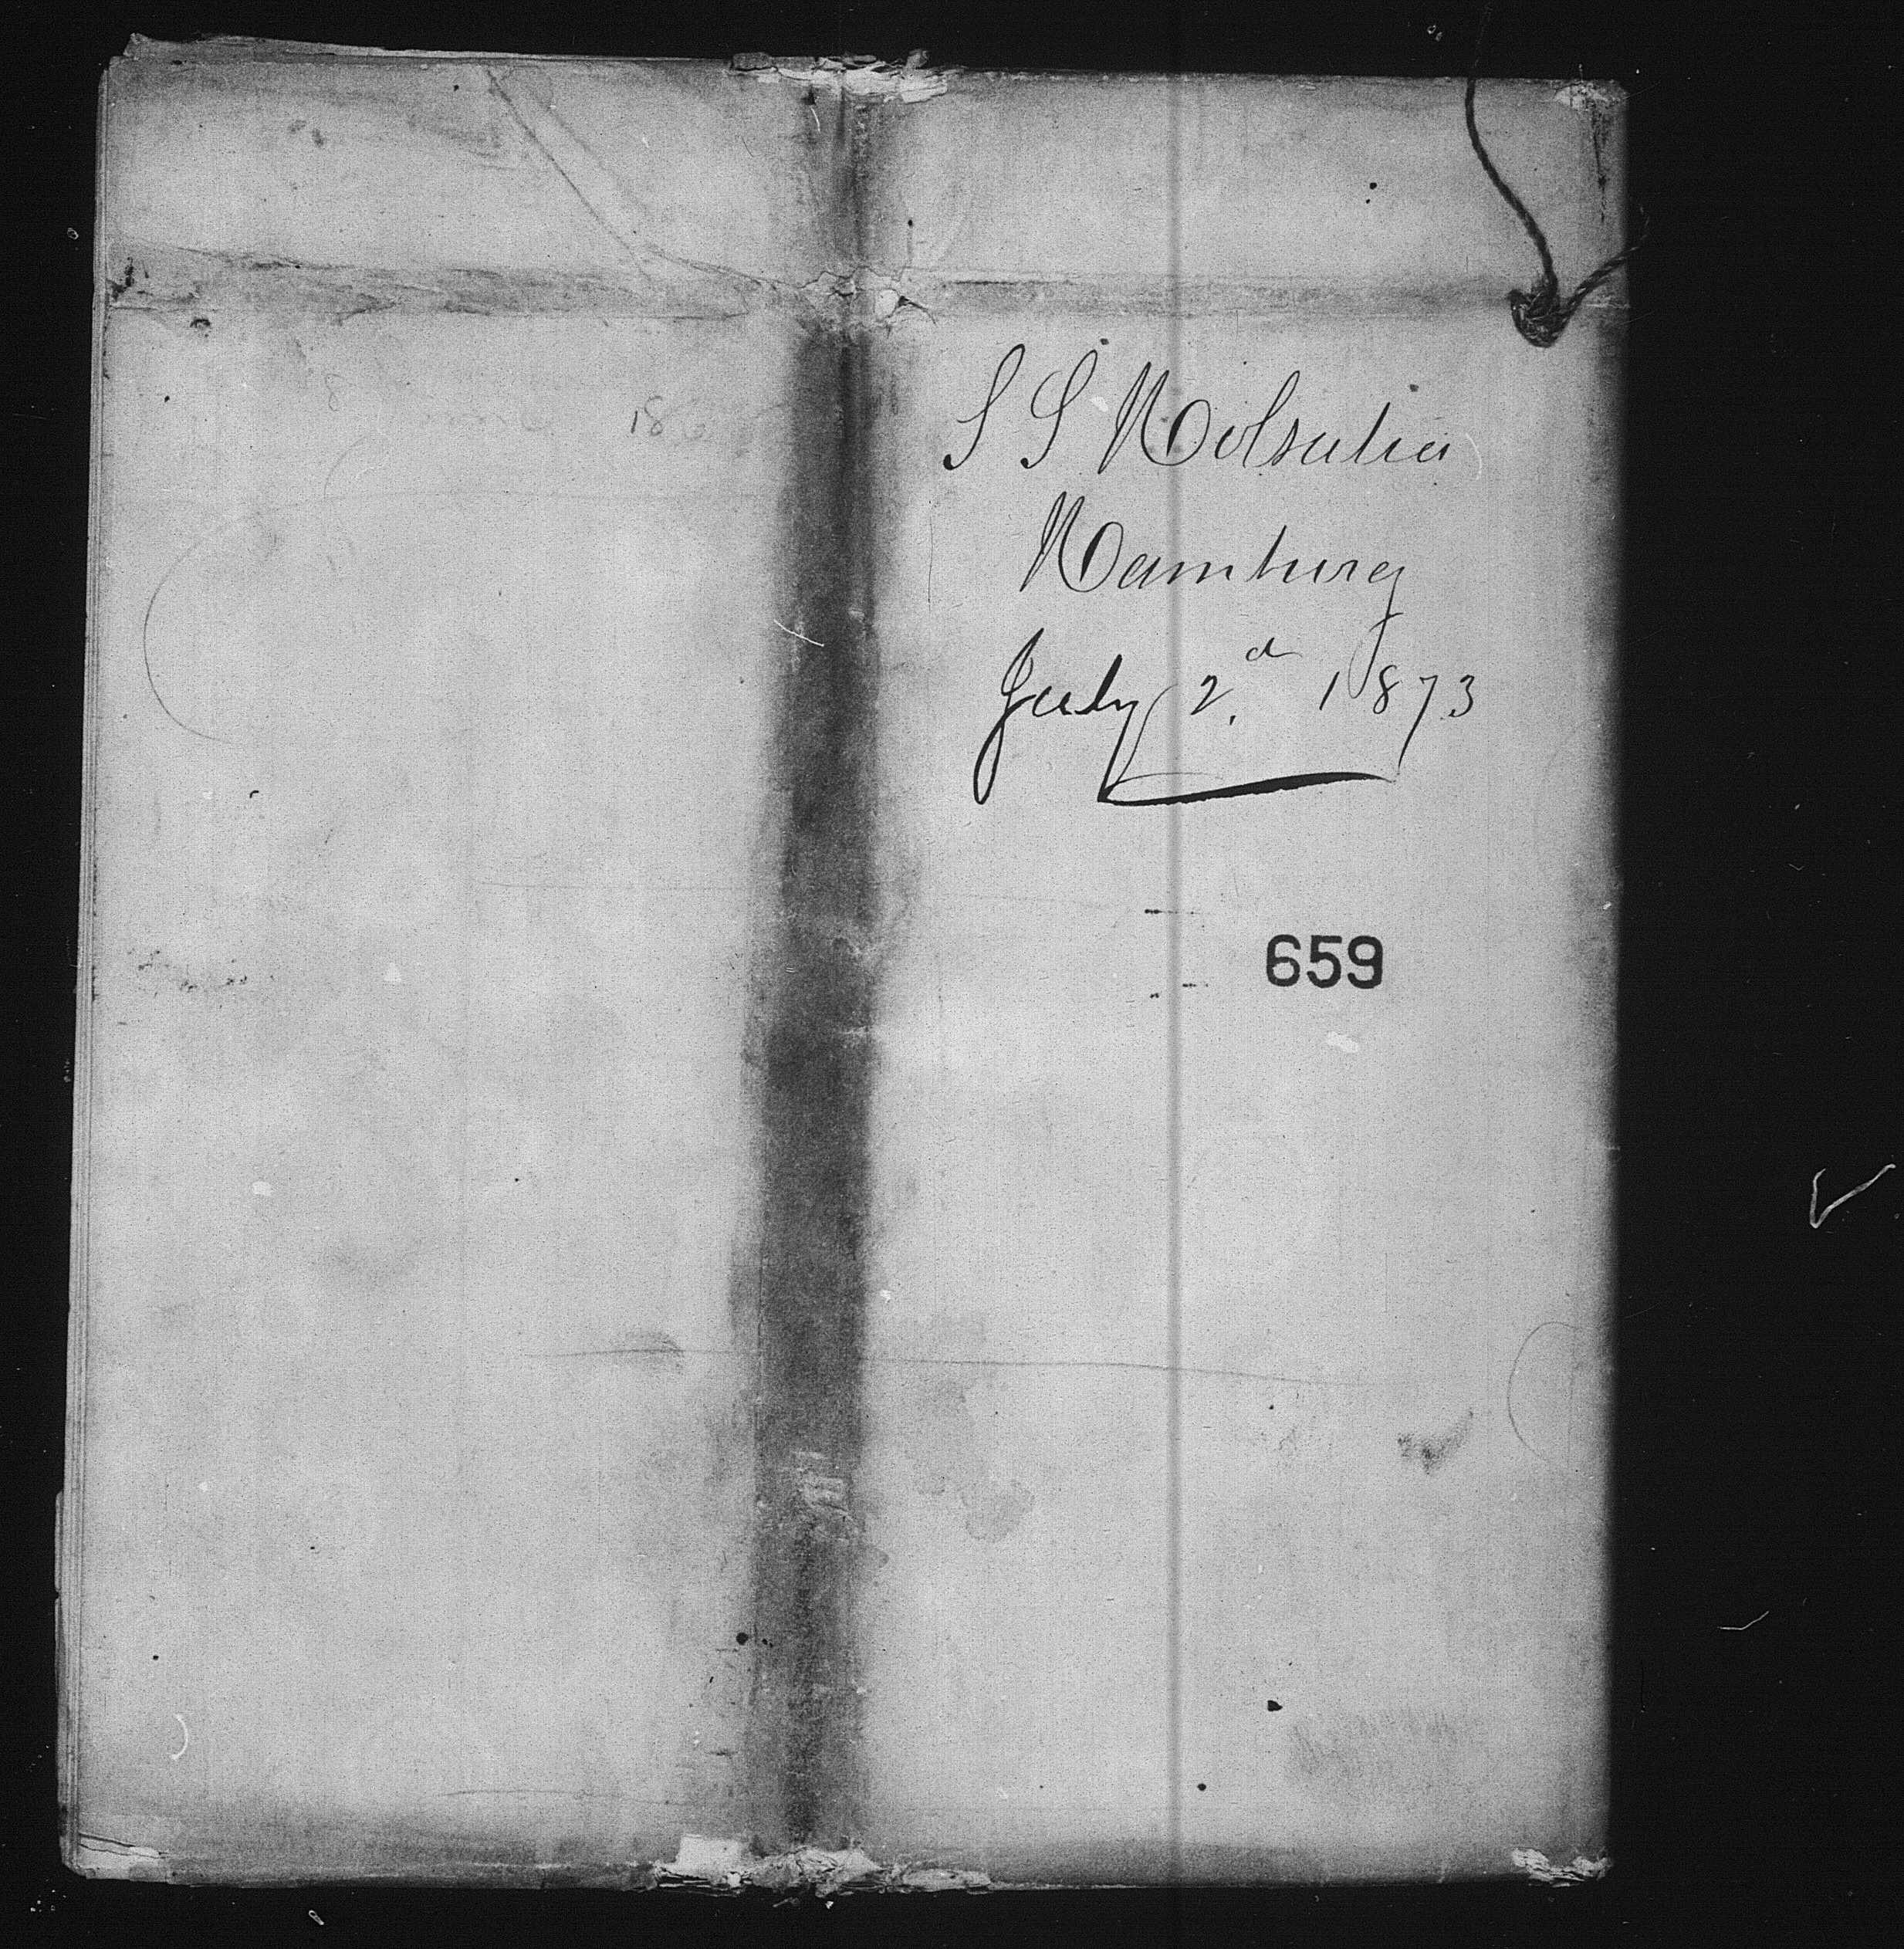 S S Holsatia
Hamburg
July 2.d 1873
659